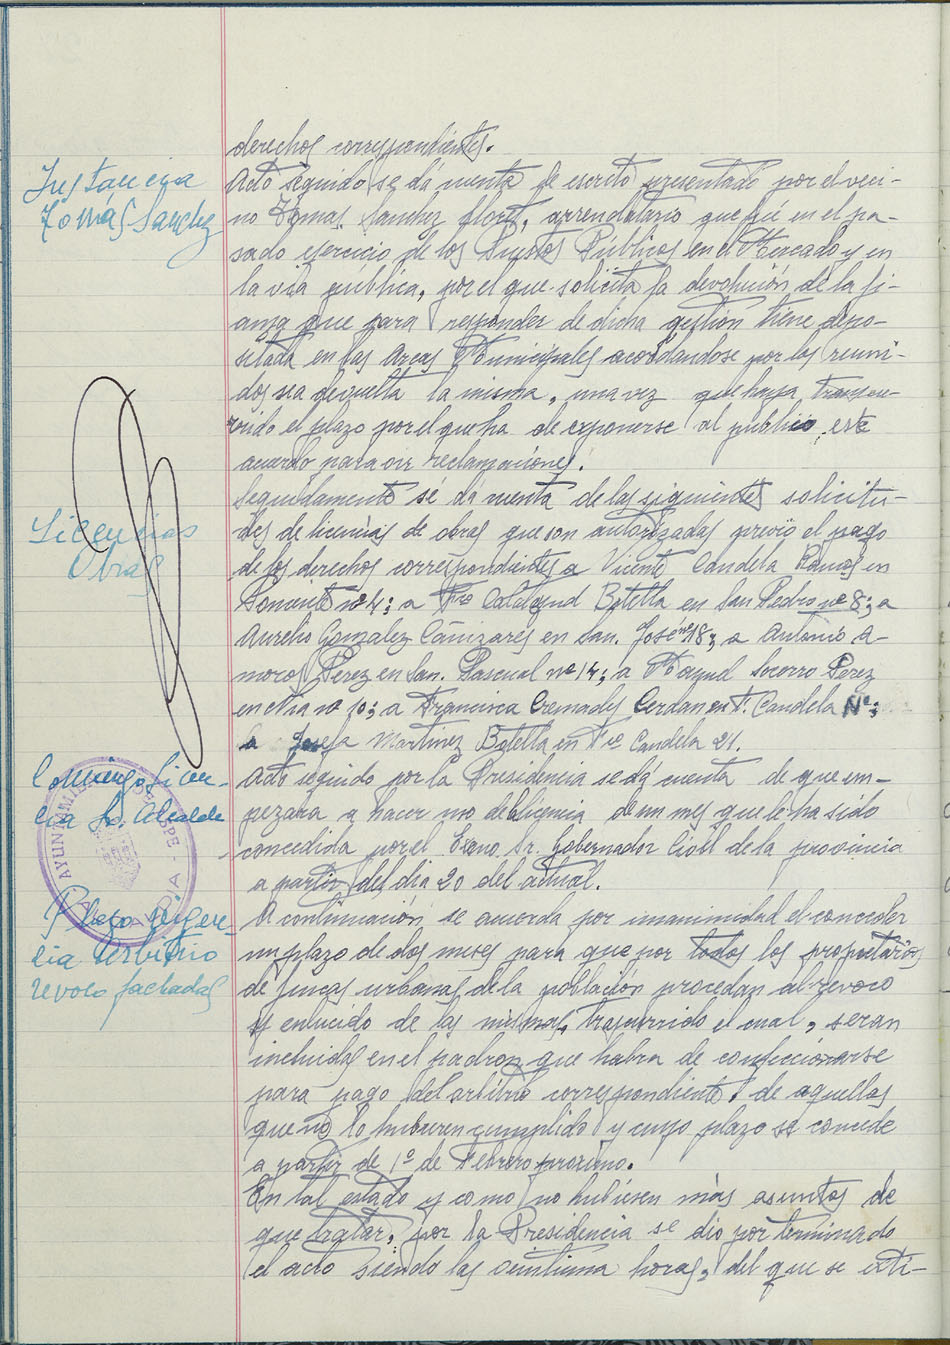 derechos correspondientes.
Instancia
Tomás Sanchez
Acto seguido se dá cuenta de escrito presentado por el veci-
no Tomas Sanchez Floret, arrendatario que fué en el pa-
sado ejercicio de los Puestos Públicos en el Mercado y en
la via pública, por el que solicita la devolución de la fi-
anza que para responder de dicha gestión tiene depo-
sitada en las Arcas Municipales acordandose por los reuni-
dos sea devuelta la misma, una vez que haya transcu-
rrido el plazo por el que ha de exponerse al publico, este
acuerdo para oir reclamaciones.
Licencias
Obras
Seguidamente se dá cuenta de las siguientes solicitu-
des de licencias de obras que son autorizadas previo el pago
de los derechos correspondientes a Vicente Candela Ramos en
nº 4; a Fco Calatayud Botella en San Pedro nº 8; a
Aurelio Gonzalez Cañizares en San José nº 18; a Antonio A-
moros Perez en San Pascual nº 14; a Socorro Perez
en nº 10; a Francisca Cremades Cerdan en F. Candela Nº;
a Josefa Martinez Botella en Fco Candela 21.
Comienzo licen-
cia Sr. Alcalde
Acto seguido por la Presidencia se dá cuenta de que em-
pezara a hacer uso de la licencia de un mes que le ha sido
concedida por el Excmo Sr. Gobernador Civil de la provincia
a partir del dia 20 del actual.
AYUNTAMIENTO
Plazo vigen-
cia arbitrio
revoco fachadas
A continuación se acuerda por unanimidad el conceder
un plazo de dos meses para que por todos los propietarios
de fincas urbanas de la población procedan al revoco
y enlucido de las mismas, trascurrido el cual, seran
incluidas en el padron que habra de confeccionarse
para pago del arbitrio correspondiente de aquellas
que no lo hubieren cumplido y cuyo plazo se concede
a partir de 1º de Febrero proximo.
En tal estado y como no hubiesen más asuntos de
que tratar, por la Presidencia se dio por terminado
el acto siendo las veintiuna horas, del que se exti-